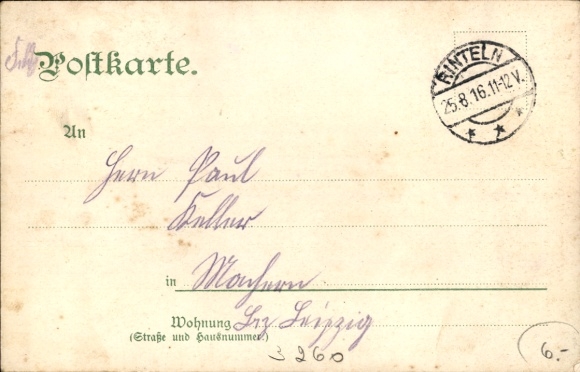 Postkarte.
RINTELN
25.8.16.11-12 V.
An
Herrn Paul
Keller
in Machern
Wohnung Bz Leipzig
(Straße und Hausnummer.)
3260
6.-